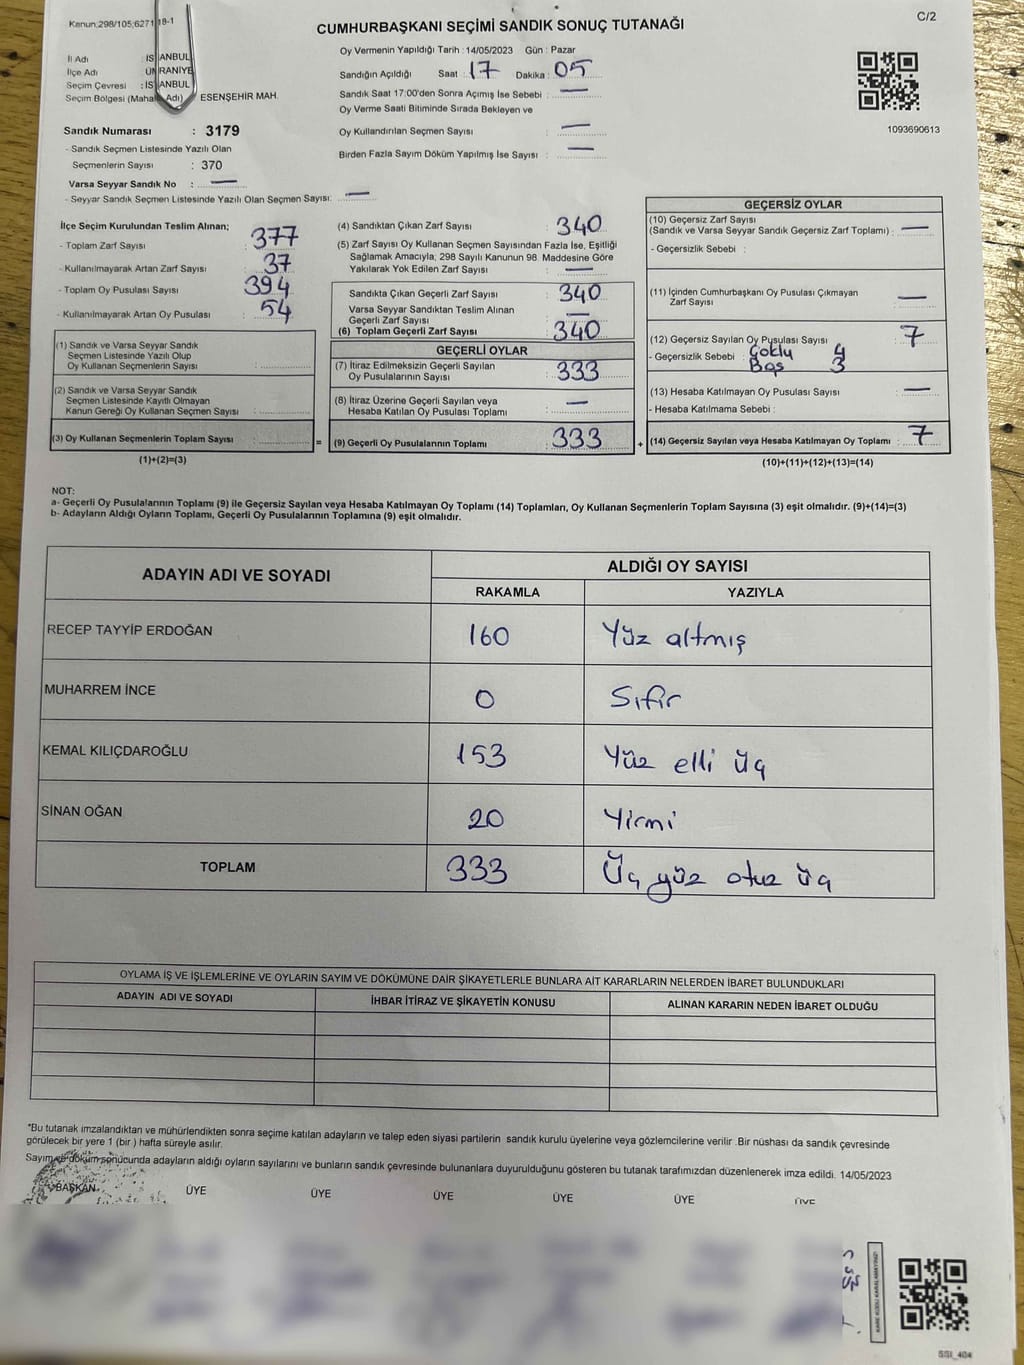 Kanun:298/105;6271 18-1
C/2
CUMHURBAŞKANI SEÇİMİ SANDIK SONUÇ TUTANAĞI
Oy Vermenin Yapıldığı Tarih : 14/05/2023 Gün : Pazar
İl Adı : İSTANBUL
İlçe Adı ÜMRANİYE
Seçim Çevresi : İSTANBUL
Seçim Bölgesi (Mahalle Adı) ESENŞEHİR MAH.
Sandığın Açıldığı Saat : 17 Dakika : 05
Sandık Saat 17:00'den Sonra Açımış İse Sebebi : —
Oy Verme Saati Bitiminde Sırada Bekleyen ve
Oy Kullandırılan Seçmen Sayısı : —
Birden Fazla Sayım Döküm Yapılmış İse Sayısı : —
1093690613
Sandık Numarası : 3179
- Sandık Seçmen Listesinde Yazılı Olan
Seçmenlerin Sayısı : 370
Varsa Seyyar Sandık No : —
- Seyyar Sandık Seçmen Listesinde Yazılı Olan Seçmen Sayısı: —
İlçe Seçim Kurulundan Teslim Alınan;
- Toplam Zarf Sayısı : 377
- Kullanılmayarak Artan Zarf Sayısı : 37
- Toplam Oy Pusulası Sayısı : 394
- Kullanılmayarak Artan Oy Pusulası : 54
(1) Sandık ve Varsa Seyyar Sandık
Seçmen Listesinde Yazılı Olup
Oy Kullanan Seçmenlerin Sayısı :
(2) Sandık ve Varsa Seyyar Sandık
Seçmen Listesinde Kayıtlı Olmayan
Kanun Gereği Oy Kullanan Seçmen Sayısı :
(3) Oy Kullanan Seçmenlerin Toplam Sayısı :
(1)+(2)=(3)
(4) Sandıktan Çıkan Zarf Sayısı : 340
(5) Zarf Sayısı Oy Kullanan Seçmen Sayısından Fazla İse, Eşitliği
Sağlamak Amacıyla; 298 Sayılı Kanunun 98. Maddesine Göre
Yakılarak Yok Edilen Zarf Sayısı : —
Sandıkta Çıkan Geçerli Zarf Sayısı : 340
Varsa Seyyar Sandıktan Teslim Alınan
Geçerli Zarf Sayısı : —
(6) Toplam Geçerli Zarf Sayısı : 340
GEÇERLİ OYLAR
(7) İtiraz Edilmeksizin Geçerli Sayılan
Oy Pusulalarının Sayısı : 333
(8) İtiraz Üzerine Geçerli Sayılan veya
Hesaba Katılan Oy Pusulası Toplamı : —
= (9) Geçerli Oy Pusulalarının Toplamı : 333 +
GEÇERSİZ OYLAR
(10) Geçersiz Zarf Sayısı
(Sandık ve Varsa Seyyar Sandık Geçersiz Zarf Toplamı) : —
- Geçersizlik Sebebi :
(11) İçinden Cumhurbaşkanı Oy Pusulası Çıkmayan
Zarf Sayısı : —
(12) Geçersiz Sayılan Oy Pusulası Sayısı : 7
- Geçersizlik Sebebi : Çoklu 4
Boş 3
(13) Hesaba Katılmayan Oy Pusulası Sayısı : —
- Hesaba Katılmama Sebebi :
(14) Geçersiz Sayılan veya Hesaba Katılmayan Oy Toplamı : 7
(10)+(11)+(12)+(13)=(14)
NOT:
a- Geçerli Oy Pusulalarının Toplamı (9) ile Geçersiz Sayılan veya Hesaba Katılmayan Oy Toplamı (14) Toplamları, Oy Kullanan Seçmenlerin Toplam Sayısına (3) eşit olmalıdır. (9)+(14)=(3)
b- Adayların Aldığı Oyların Toplamı, Geçerli Oy Pusulalarının Toplamına (9) eşit olmalıdır.
ADAYIN ADI VE SOYADI ALDIĞI OY SAYISI
RAKAMLA YAZIYLA
RECEP TAYYİP ERDOĞAN 160 Yüz altmış
MUHARREM İNCE 0 Sıfır
KEMAL KILIÇDAROĞLU 153 Yüz elli üç
SİNAN OĞAN 20 Yirmi
TOPLAM 333 Üç yüz otuz üç
OYLAMA İŞ VE İŞLEMLERİNE VE OYLARIN SAYIM VE DÖKÜMÜNE DAİR ŞİKAYETLERLE BUNLARA AİT KARARLARIN NELERDEN İBARET BULUNDUKLARI
ADAYIN ADI VE SOYADI İHBAR İTİRAZ VE ŞİKAYETİN KONUSU ALINAN KARARIN NEDEN İBARET OLDUĞU
*Bu tutanak imzalandıktan ve mühürlendikten sonra seçime katılan adayların ve talep eden siyasi partilerin sandık kurulu üyelerine veya gözlemcilerine verilir .Bir nüshası da sandık çevresinde
görülecek bir yere 1 (bir ) hafta süreyle asılır.
Sayım ve döküm sonucunda adayların aldığı oyların sayılarını ve bunların sandık çevresinde bulunanlara duyurulduğunu gösteren bu tutanak tarafımızdan düzenlenerek imza edildi. 14/05/2023
BAŞKAN ÜYE ÜYE ÜYE ÜYE ÜYE ÜYE
KARE KODU KARALAMAYINIZ!
SSI_404